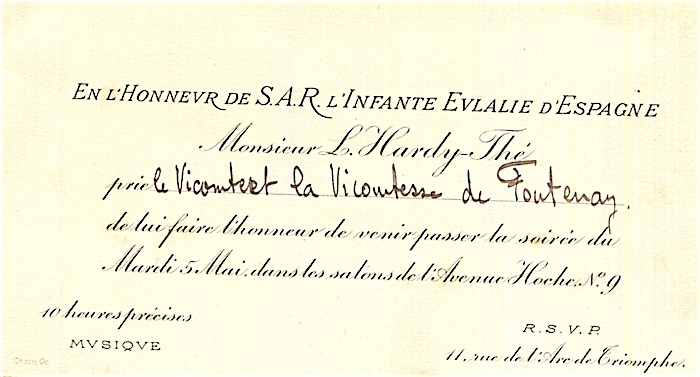 EN L'HONNEVR DE S.A.R. L'INFANTE EVLALIE D'ESPAGNE
Monsieur L. Hardy-Thé
prie le Vicomte et la Vicomtesse de Fontenay.
de lui faire l'honneur de venir passer la soirée du
Mardi 5 Mai, dans les salons de l'Avenue Hoche, No. 9
10 heures précises
MVSIQVE
R.S.V.P.
11, rue de l'Arc de Triomphe.